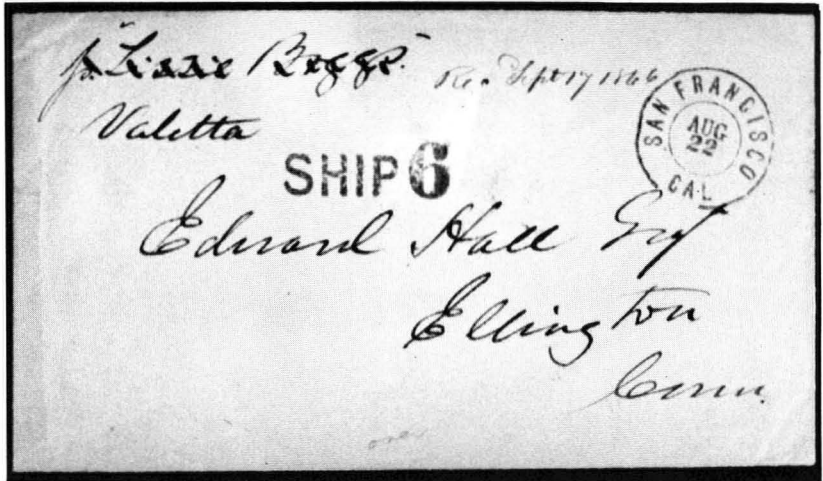 pr "Lizzie Boggs"
Rec. Sept 17 1866
Valetta
SAN FRANCISCO
AUG
22
CAL
SHIP 6
Edward Hall Esq
Ellington
Conn.
over